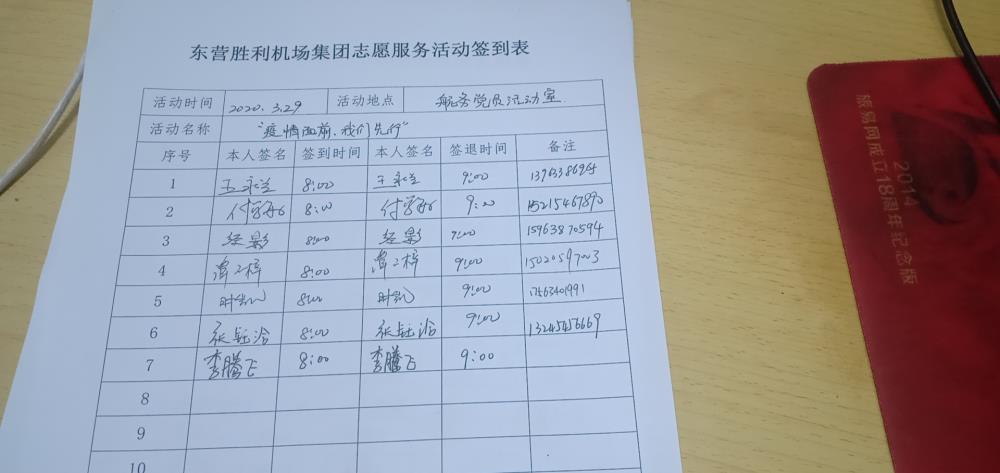 东营胜利机场集团志愿服务活动签到表
活动时间 2020.3.29 活动地点 航务党员活动室
活动名称 "疫情面前,我们先行"
序号 本人签名 签到时间 本人签名 签退时间 备注
1 王永兰 8:00 王永兰 9:00
2 8:00 9:00 15215467890
3 经影 8:00 经影 9:00 15963870594
4 8:00 9:00 15020597003
5 时凯 8:00 时凯 9:00
6 张钰洽 8:00 张钰洽 9:00 13245456669
7 李腾飞 8:00 李腾飞 9:00
8
9
10
2014
旅易网成立18周年纪念版